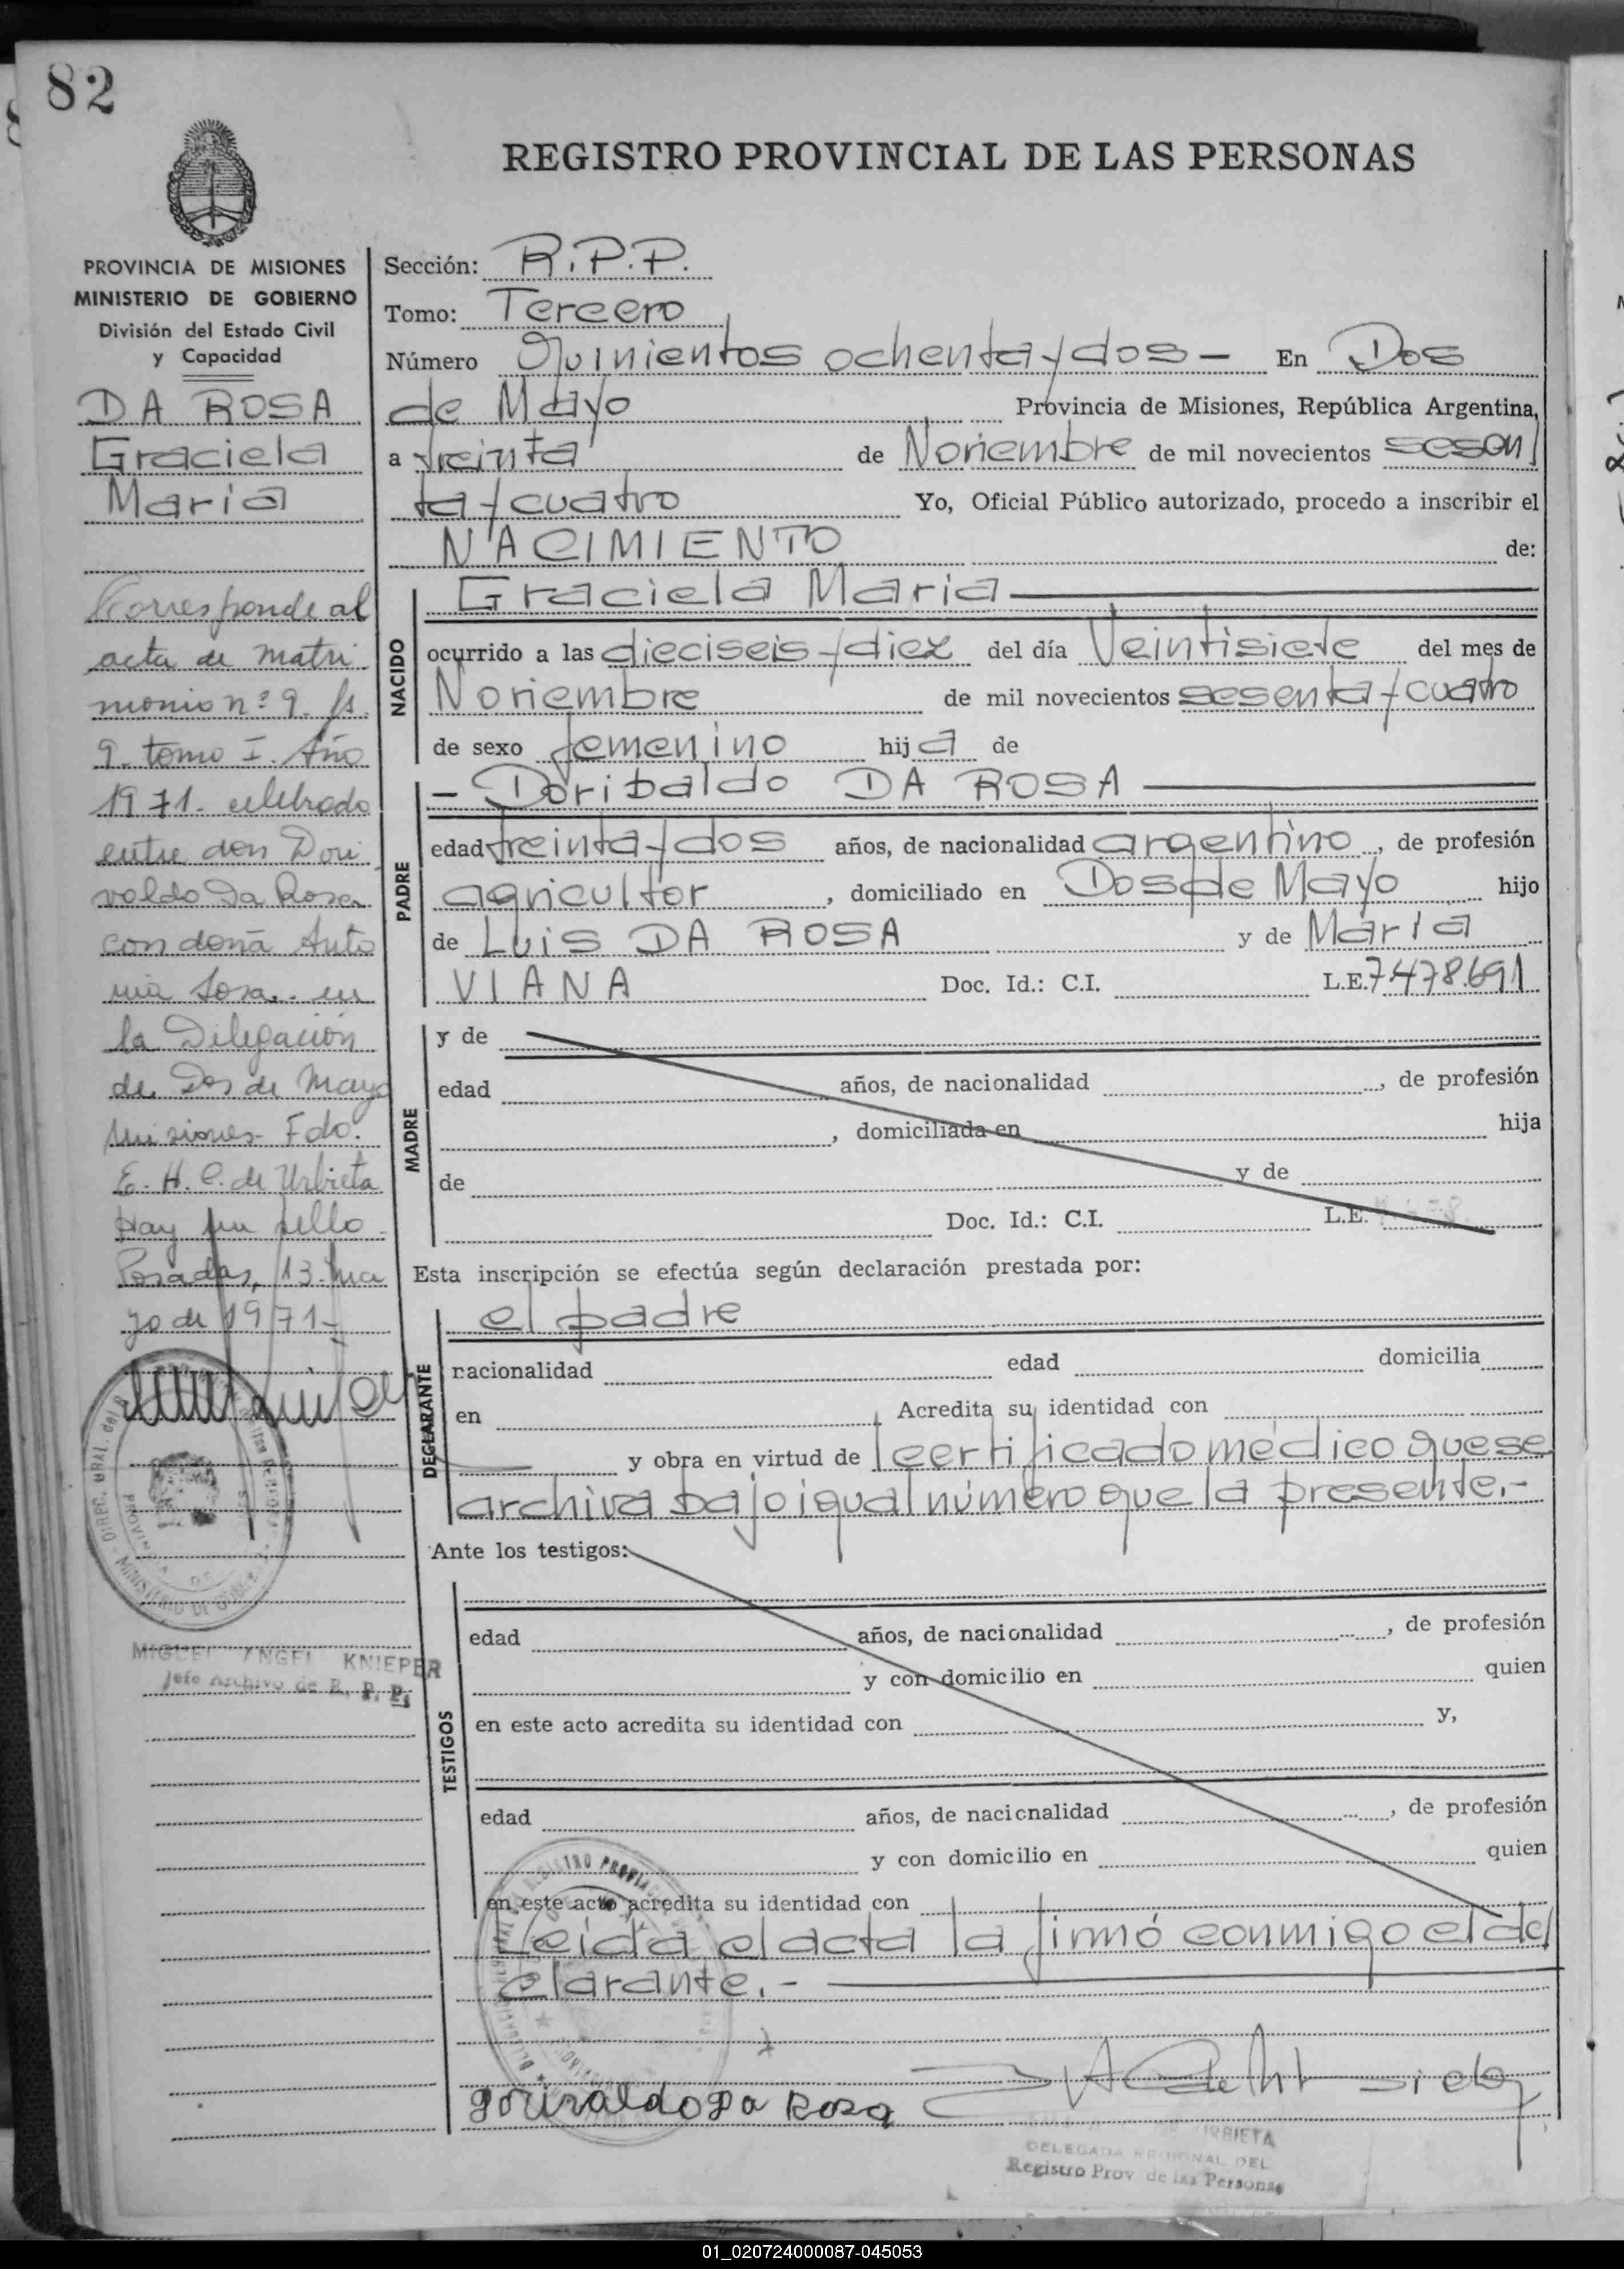 82
REGISTRO PROVINCIAL DE LAS PERSONAS
PROVINCIA DE MISIONES
MINISTERIO DE GOBIERNO
División del Estado Civil
y Capacidad
DA ROSA
Graciela
Maria
Corresponde al
acta de matri
monio nº 9. fs
9. tomo I. Año
1971. celebrado
entre don Dori
valdo Da Rosa
con doña Anto
nia Sosa. en
la Delegación
de Dos de Mayo
Misiones- Fdo.
E. H. C. de Urbieta
Hay un sello
Posadas, 13. ma
yo de 1971-
MIGUEL ANGEL KNIEPER
Jefe Archivo de R. P. P.
Sección: R.P.P.
Tomo: Tercero
Número Quinientos ochenta y dos - En Dos
de Mayo Provincia de Misiones, República Argentina,
a treinta de Noviembre de mil novecientos sesen
ta y cuatro Yo, Oficial Público autorizado, procedo a inscribir el
NACIMIENTO de:
NACIDO
Graciela Maria
ocurrido a las dieciseis y diez del día Veintisiete del mes de
Noviembre de mil novecientos sesenta y cuatro
de sexo femenino hija de
PADRE
- Doribaldo DA ROSA
edad treinta y dos años, de nacionalidad argentino, de profesión
agricultor, domiciliado en Dos de Mayo hijo
de Luis DA ROSA y de Maria
VIANA Doc. Id.: C.I. L.E. 7.478.691
MADRE
y de
edad años, de nacionalidad , de profesión
, domiciliada en hija
de y de
Doc. Id.: C.I. L.E.
Esta inscripción se efectúa según declaración prestada por:
DECLARANTE
el padre
nacionalidad edad domicilia
en Acredita su identidad con
y obra en virtud de certificado médico que se
archiva bajo igual número que la presente.-
Ante los testigos:
TESTIGOS
edad años, de nacionalidad , de profesión
y con domicilio en quien
en este acto acredita su identidad con y,
edad años, de nacionalidad , de profesión
y con domicilio en quien
en este acto acredita su identidad con
Leída el acta la firmó conmigo el de
clarante.-
Dorivaldo Da Rosa
URBIETA
DELEGADA REGIONAL DEL
Registro Prov. de las Personas
01_020724000087-045053